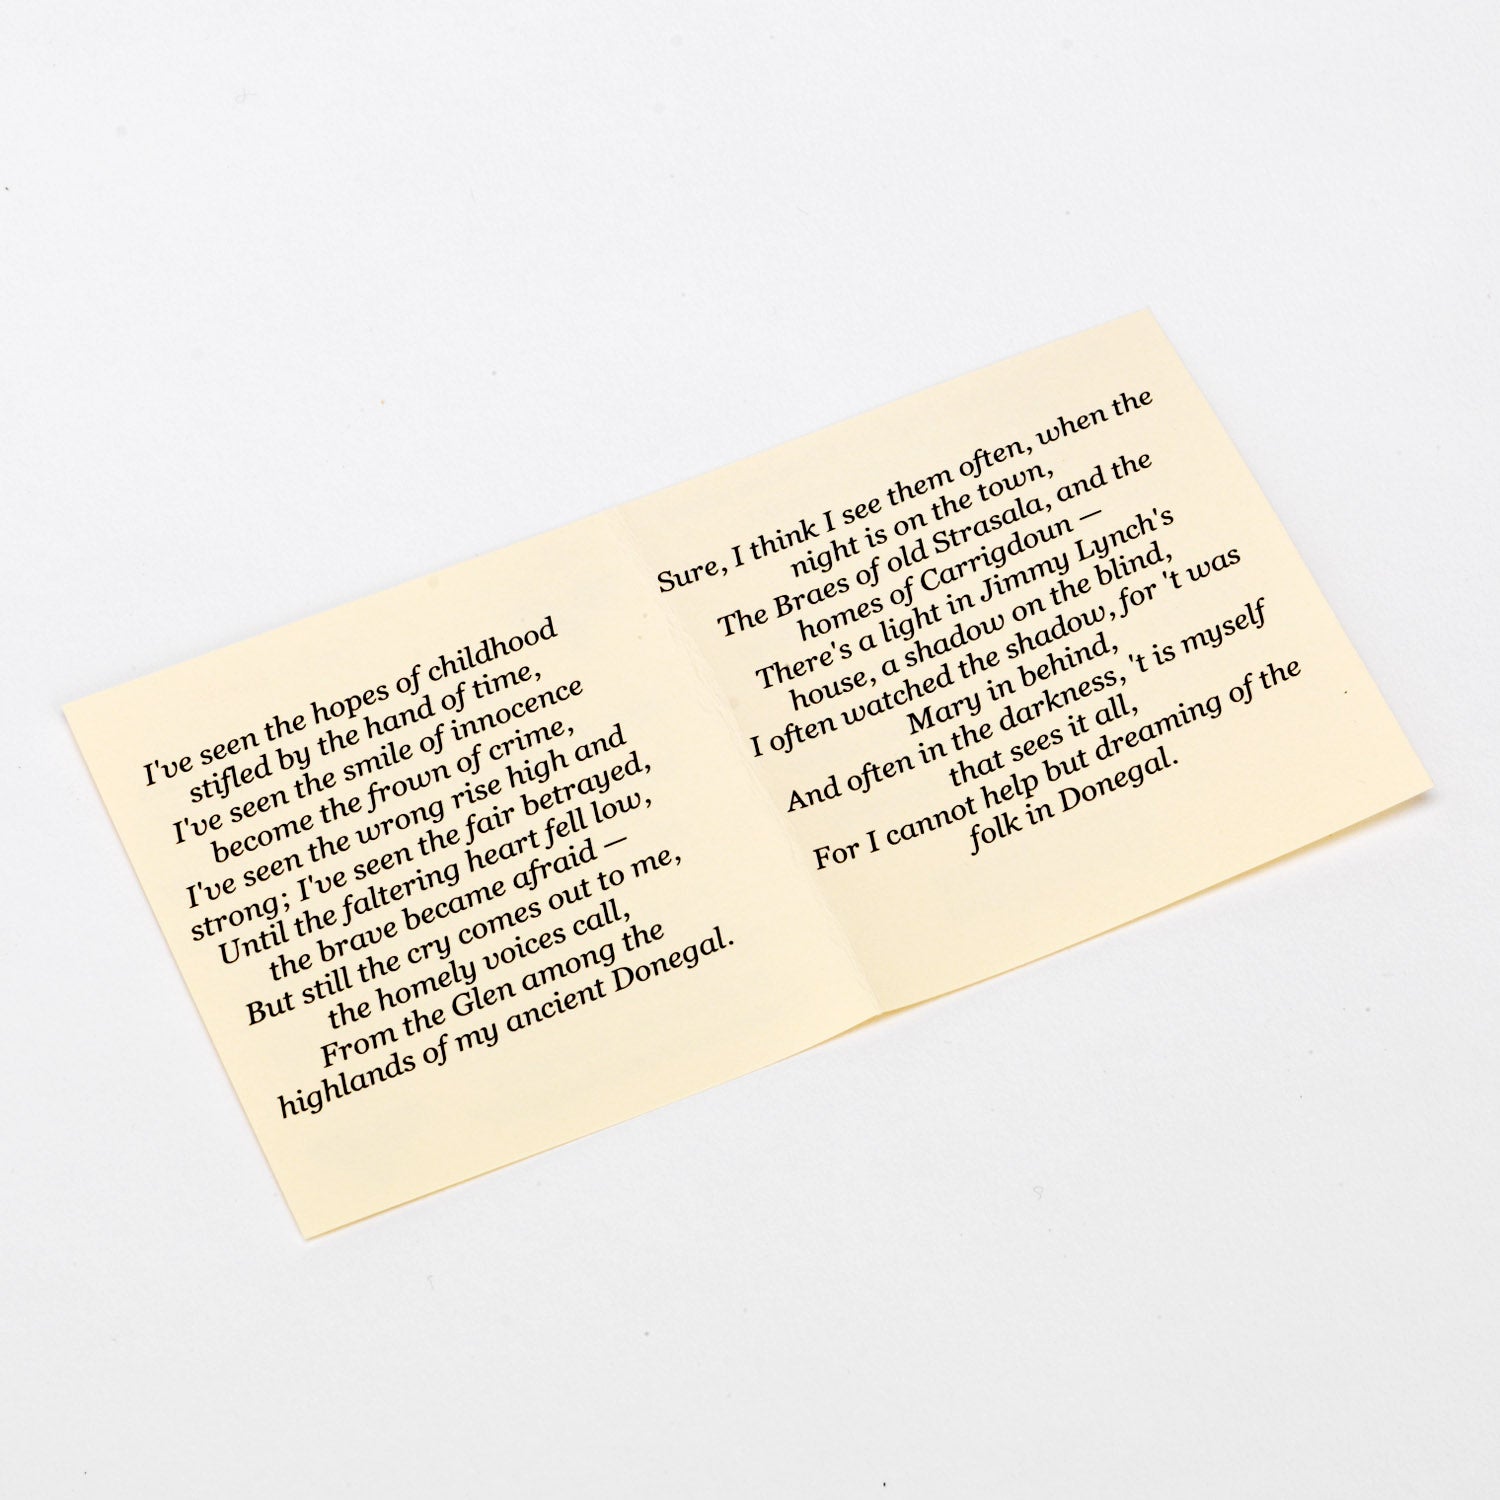 I've seen the hopes of childhood
stifled by the hand of time,
I've seen the smile of innocence
become the frown of crime,
I've seen the wrong rise high and
strong; I've seen the fair betrayed,
Until the faltering heart fell low,
the brave became afraid —
But still the cry comes out to me,
the homely voices call,
From the Glen among the
highlands of my ancient Donegal.
Sure, I think I see them often, when the
night is on the town,
The Braes of old Strasala, and the
homes of Carrigdoun —
There's a light in Jimmy Lynch's
house, a shadow on the blind,
I often watched the shadow, for 't was
Mary in behind,
And often in the darkness, 't is myself
that sees it all,
For I cannot help but dreaming of the
folk in Donegal.